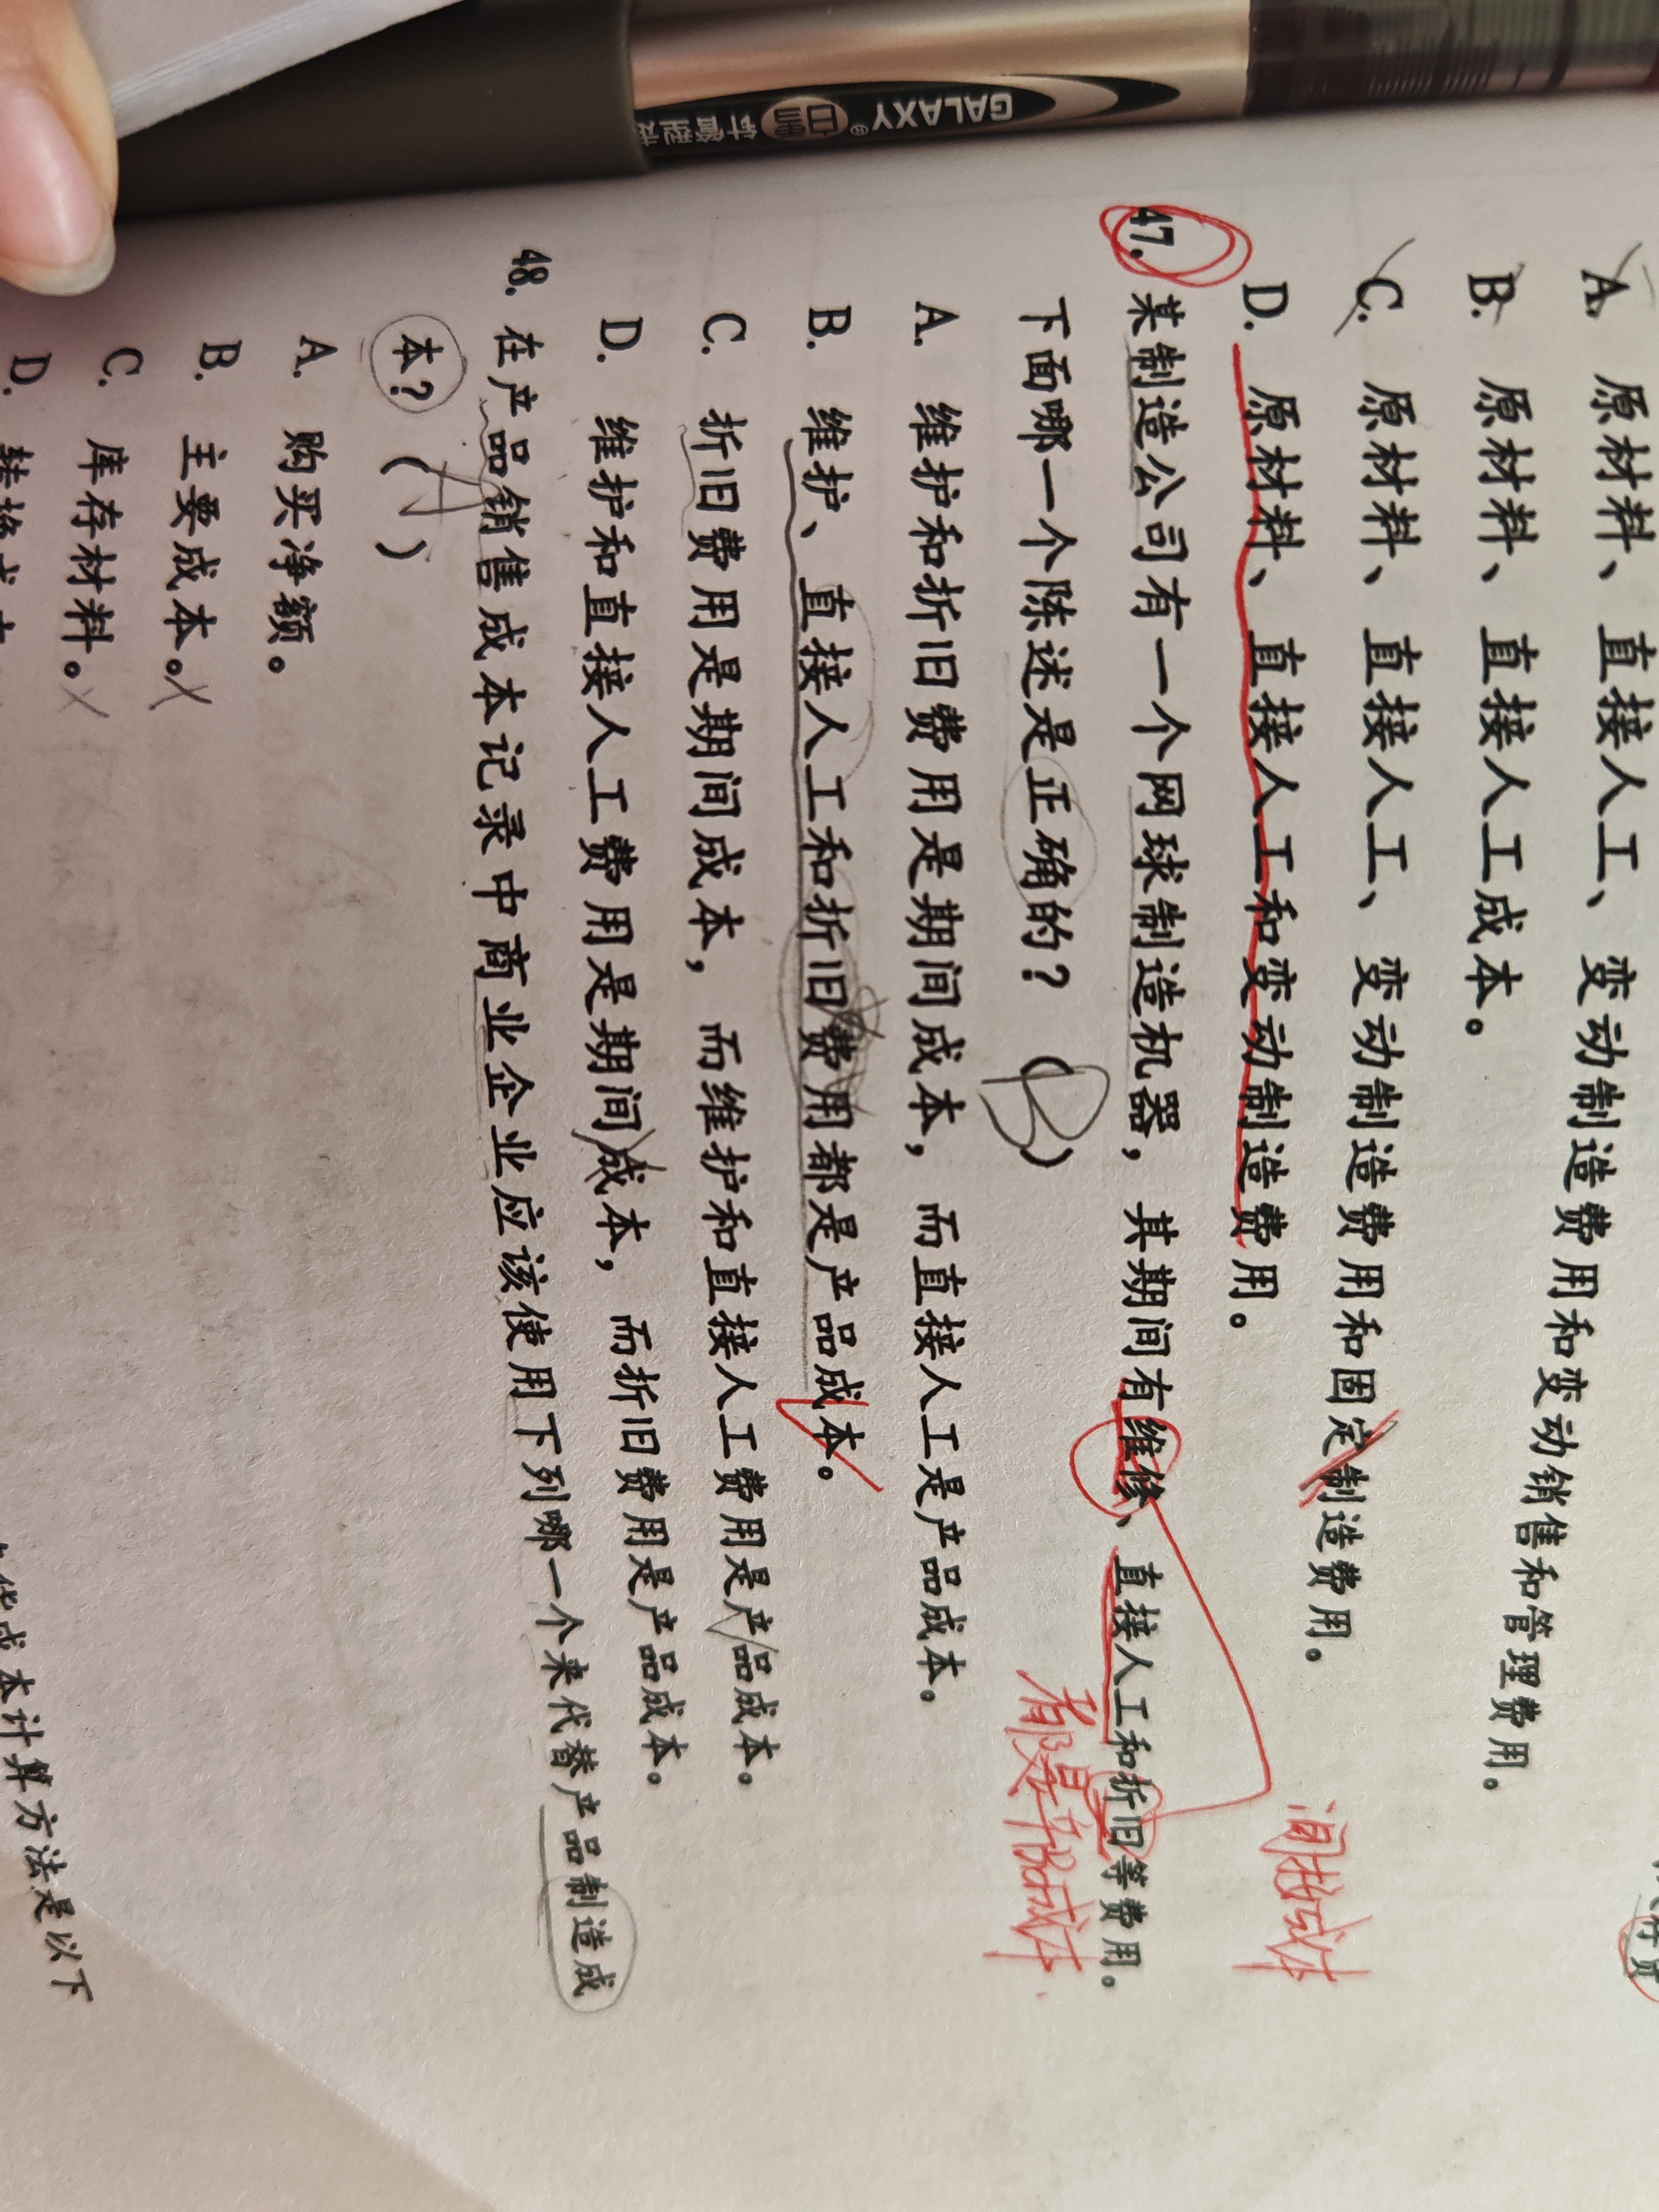 GALAXY®
针管型
A. 原材料、直接人工、变动制造费用和变动销售和管理费用。
B. 原材料、直接人工成本。
C. 原材料、直接人工、变动制造费用和固定制造费用。
D. 原材料、直接人工和变动制造费用。
间接成本
47. 某制造公司有一个网球制造机器，其期间有维修、直接人工和折旧等费用。
下面哪一个陈述是正确的？（B）
都是产品成本
A. 维护和折旧费用是期间成本，而直接人工是产品成本。
B. 维护、直接人工和折旧费用都是产品成本。
C. 折旧费用是期间成本，而维护和直接人工费用是产品成本。
D. 维护和直接人工费用是期间成本，而折旧费用是产品成本。
48. 在产品销售成本记录中商业企业应该使用下列哪一个来代替产品制造成
本？（A）
A. 购买净额。
B. 主要成本。
C. 库存材料。
D. 转换成本
成本计算方法是以下